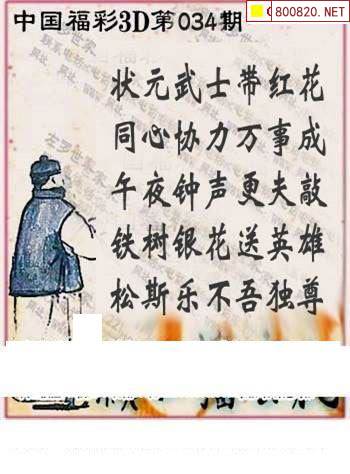 800820.NET
中国福彩3D第034期
状元武士带红花
同心协力万事成
午夜钟声更夫敲
铁树银花送英雄
松斯乐不吾独尊